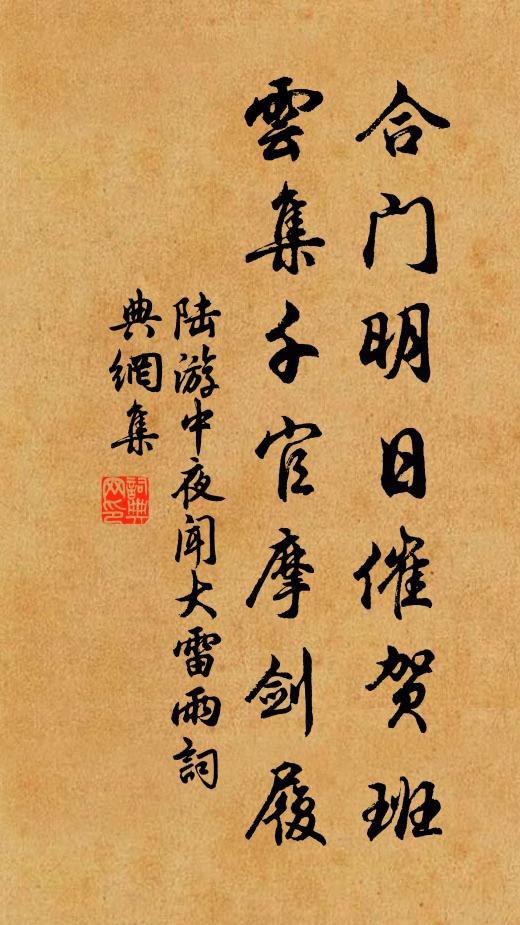 合门明日催贺班
雲集千官摩剑履
陆游中夜闻大雷雨詞
典網集
詞典
网印